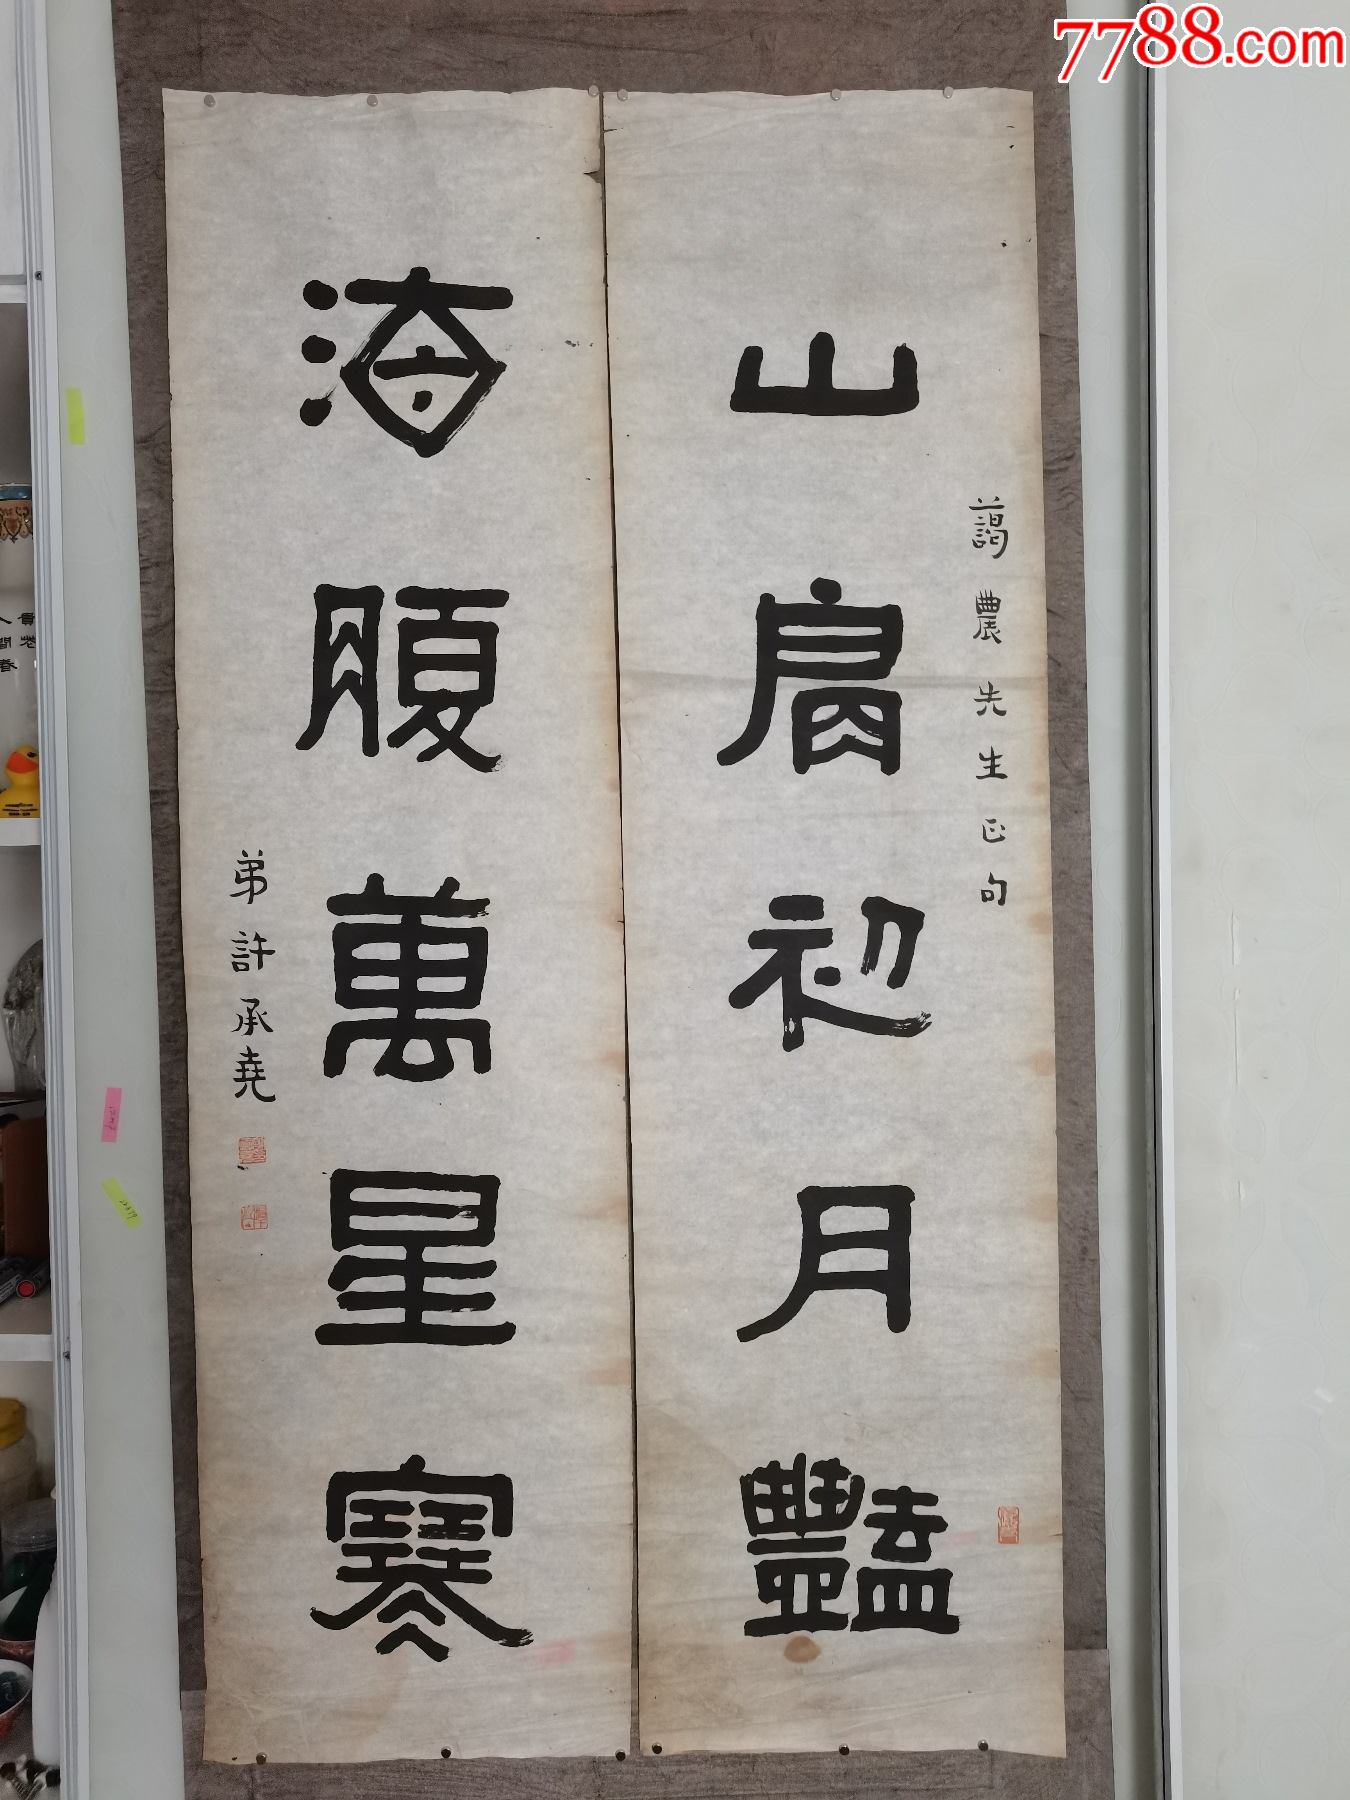 山肩初月豔
藹農先生正句
海腹萬星寒
弟許承堯
7788.com